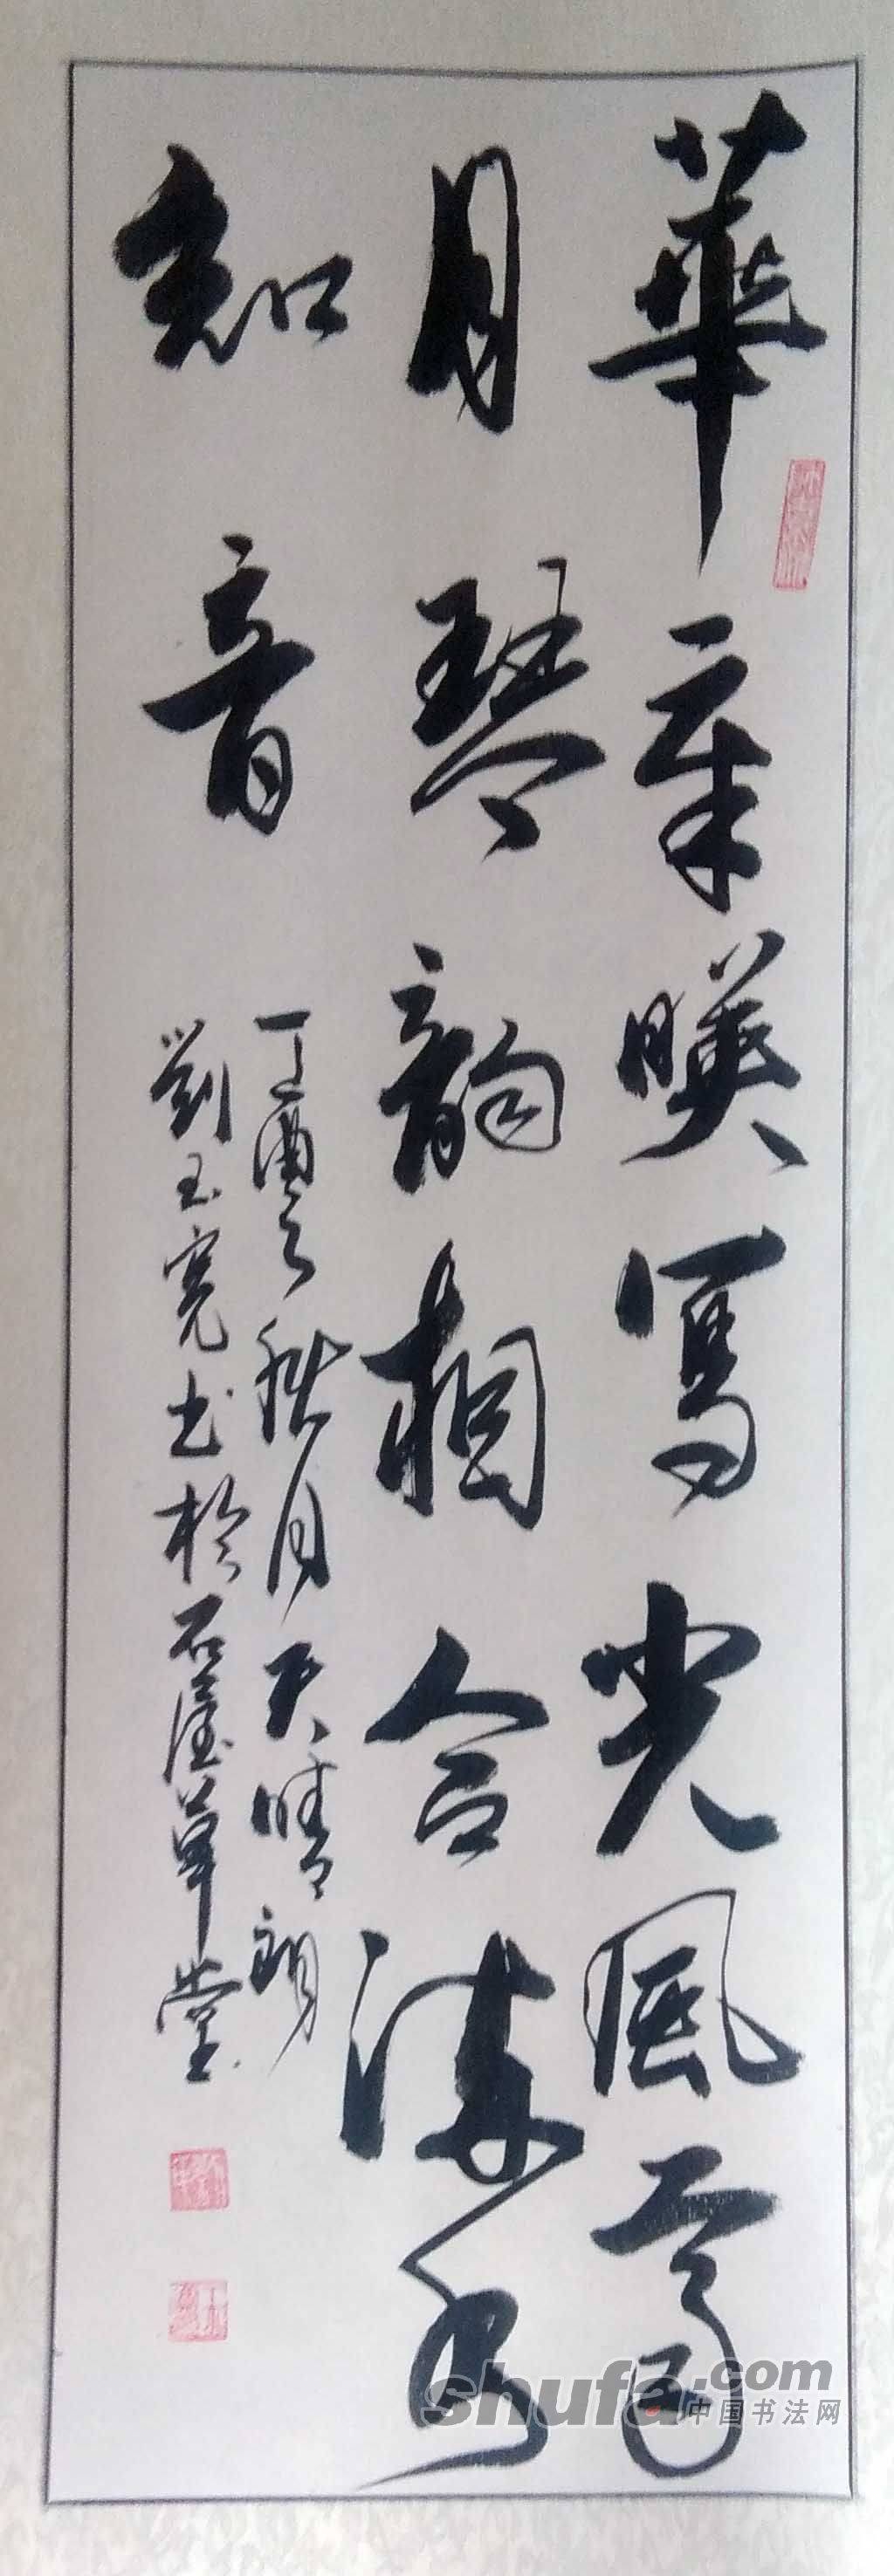 華章暎寫光風霽
月琴韻相合流水
知音
丁酉之秋月天晴朗
劉玉亮书於石屋草堂
shufa.com
中国书法网